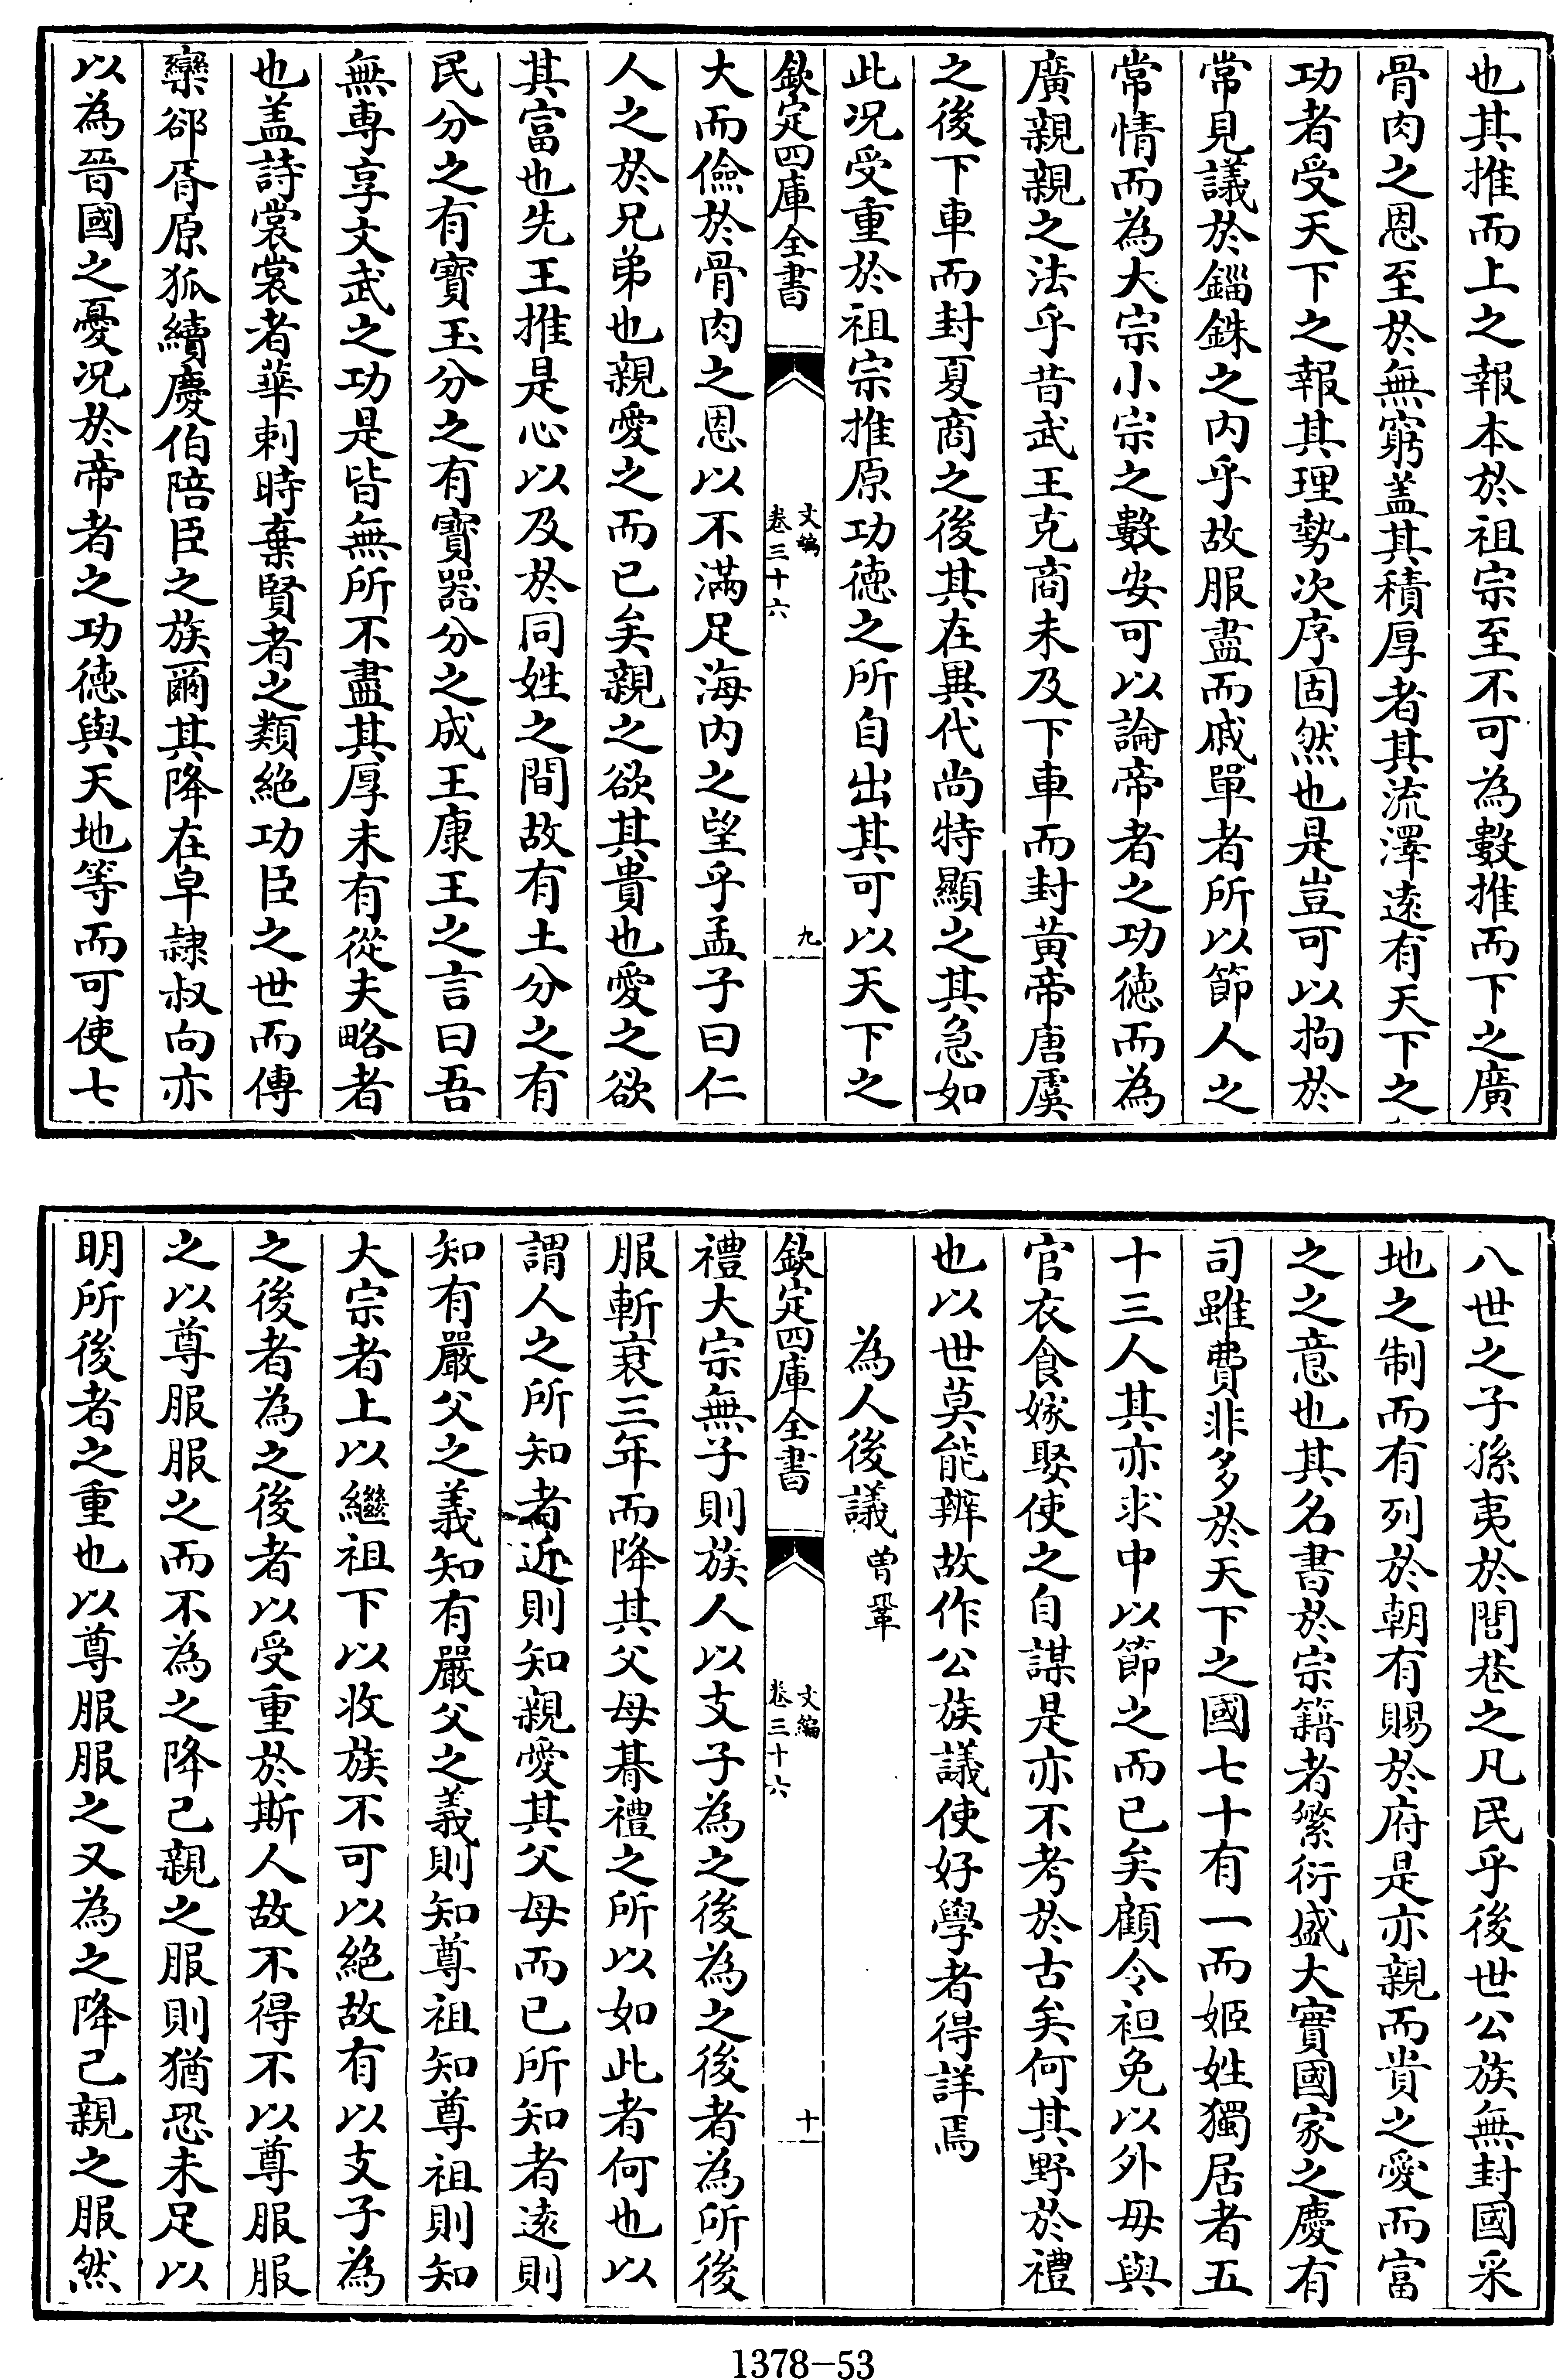 也其推而上之報本於祖宗至不可為數推而下之廣
骨肉之恩至於無窮盖其積厚者其流澤逺有天下之
功者受天下之報其理勢次序固然也是豈可以拘於
常見議於錙銖之内乎故服盡而戚單者所以節人之
常情而為大宗小宗之數安可以論帝者之功徳而為
廣親親之法乎昔武王克商未及下車而封黄帝唐虞
之後下車而封夏商之後其在異代尚特顯之其急如
此况受重於祖宗推原功徳之所自出其可以天下之
欽定四庫全書
文編
卷三十六
九
大而儉於骨肉之恩以不滿足海内之望乎孟子曰仁
人之於兄弟也親愛之而已矣親之欲其貴也愛之欲
其富也先王推是心以及於同姓之間故有土分之有
民分之有寳玉分之有寳器分之成王康王之言曰吾
無專享文武之功是皆無所不盡其厚未有從夫略者
也盖詩裳裳者華刺時棄賢者之類絶功臣之世而傳
欒郤胥原狐續慶伯陪臣之族爾其降在皁隷叔向亦
以為晉國之憂况於帝者之功徳與天地等而可使七
八世之子孫夷於閭巷之凡民乎後世公族無封國采
地之制而有列於朝有賜於府是亦親而貴之愛而富
之之意也其名書於宗籍者繁衍盛大實國家之慶有
司雖費非多於天下之國七十有一而姬姓獨居者五
十三人其亦求中以節之而已矣顧令袒免以外毋與
官衣食嫁娶使之自謀是亦不考於古矣何其野於禮
也以世莫能辨故作公族議使好學者得詳焉
為人後議 曽鞏
欽定四庫全書
文編
卷三十六
十
禮大宗無子則族人以支子為之後為之後者為所後
服斬衰三年而降其父母朞禮之所以如此者何也以
謂人之所知者近則知親愛其父母而已所知者逺則
知有嚴父之義知有嚴父之義則知尊祖知尊祖則知
大宗者上以繼祖下以收族不可以絶故有以支子為
之後者為之後者以受重於斯人故不得不以尊服服
之以尊服服之而不為之降己親之服則猶恐未足以
明所後者之重也以尊服服之又為之降己親之服然
1378—53